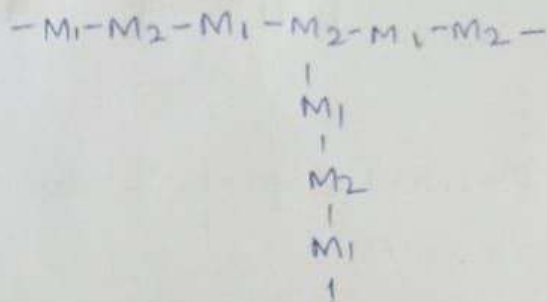 - M1 - M2 - M1 - M2 - M1 - M2 -
|
M1
|
M2
|
M1
|